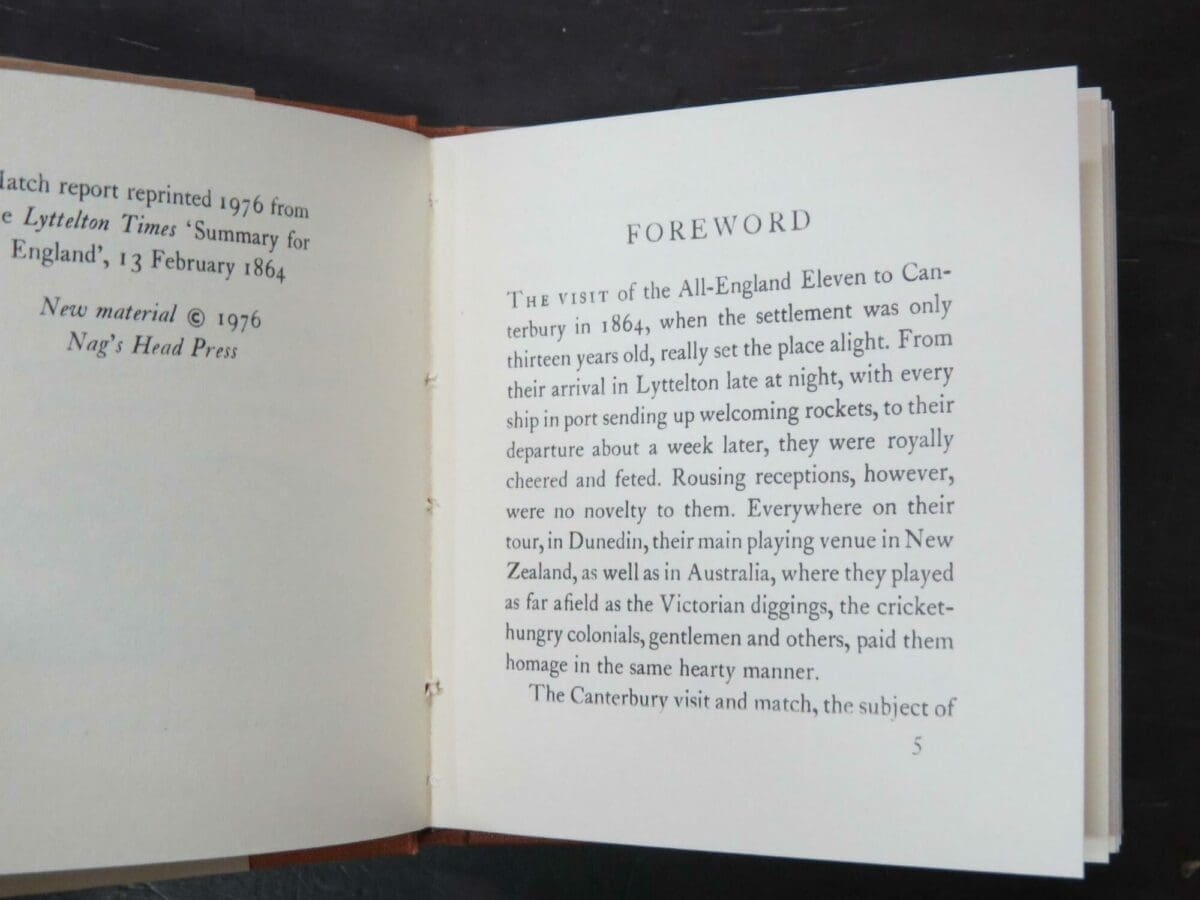 report reprinted 1976 from
Lyttelton Times ‘Summary for
England’, 13 February 1864
New material © 1976
Nag’s Head Press
FOREWORD
THE VISIT of the All-England Eleven to Can-
terbury in 1864, when the settlement was only
thirteen years old, really set the place alight. From
their arrival in Lyttelton late at night, with every
ship in port sending up welcoming rockets, to their
departure about a week later, they were royally
cheered and feted. Rousing receptions, however,
were no novelty to them. Everywhere on their
tour, in Dunedin, their main playing venue in New
Zealand, as well as in Australia, where they played
as far afield as the Victorian diggings, the cricket-
hungry colonials, gentlemen and others, paid them
homage in the same hearty manner.
The Canterbury visit and match, the subject of
5